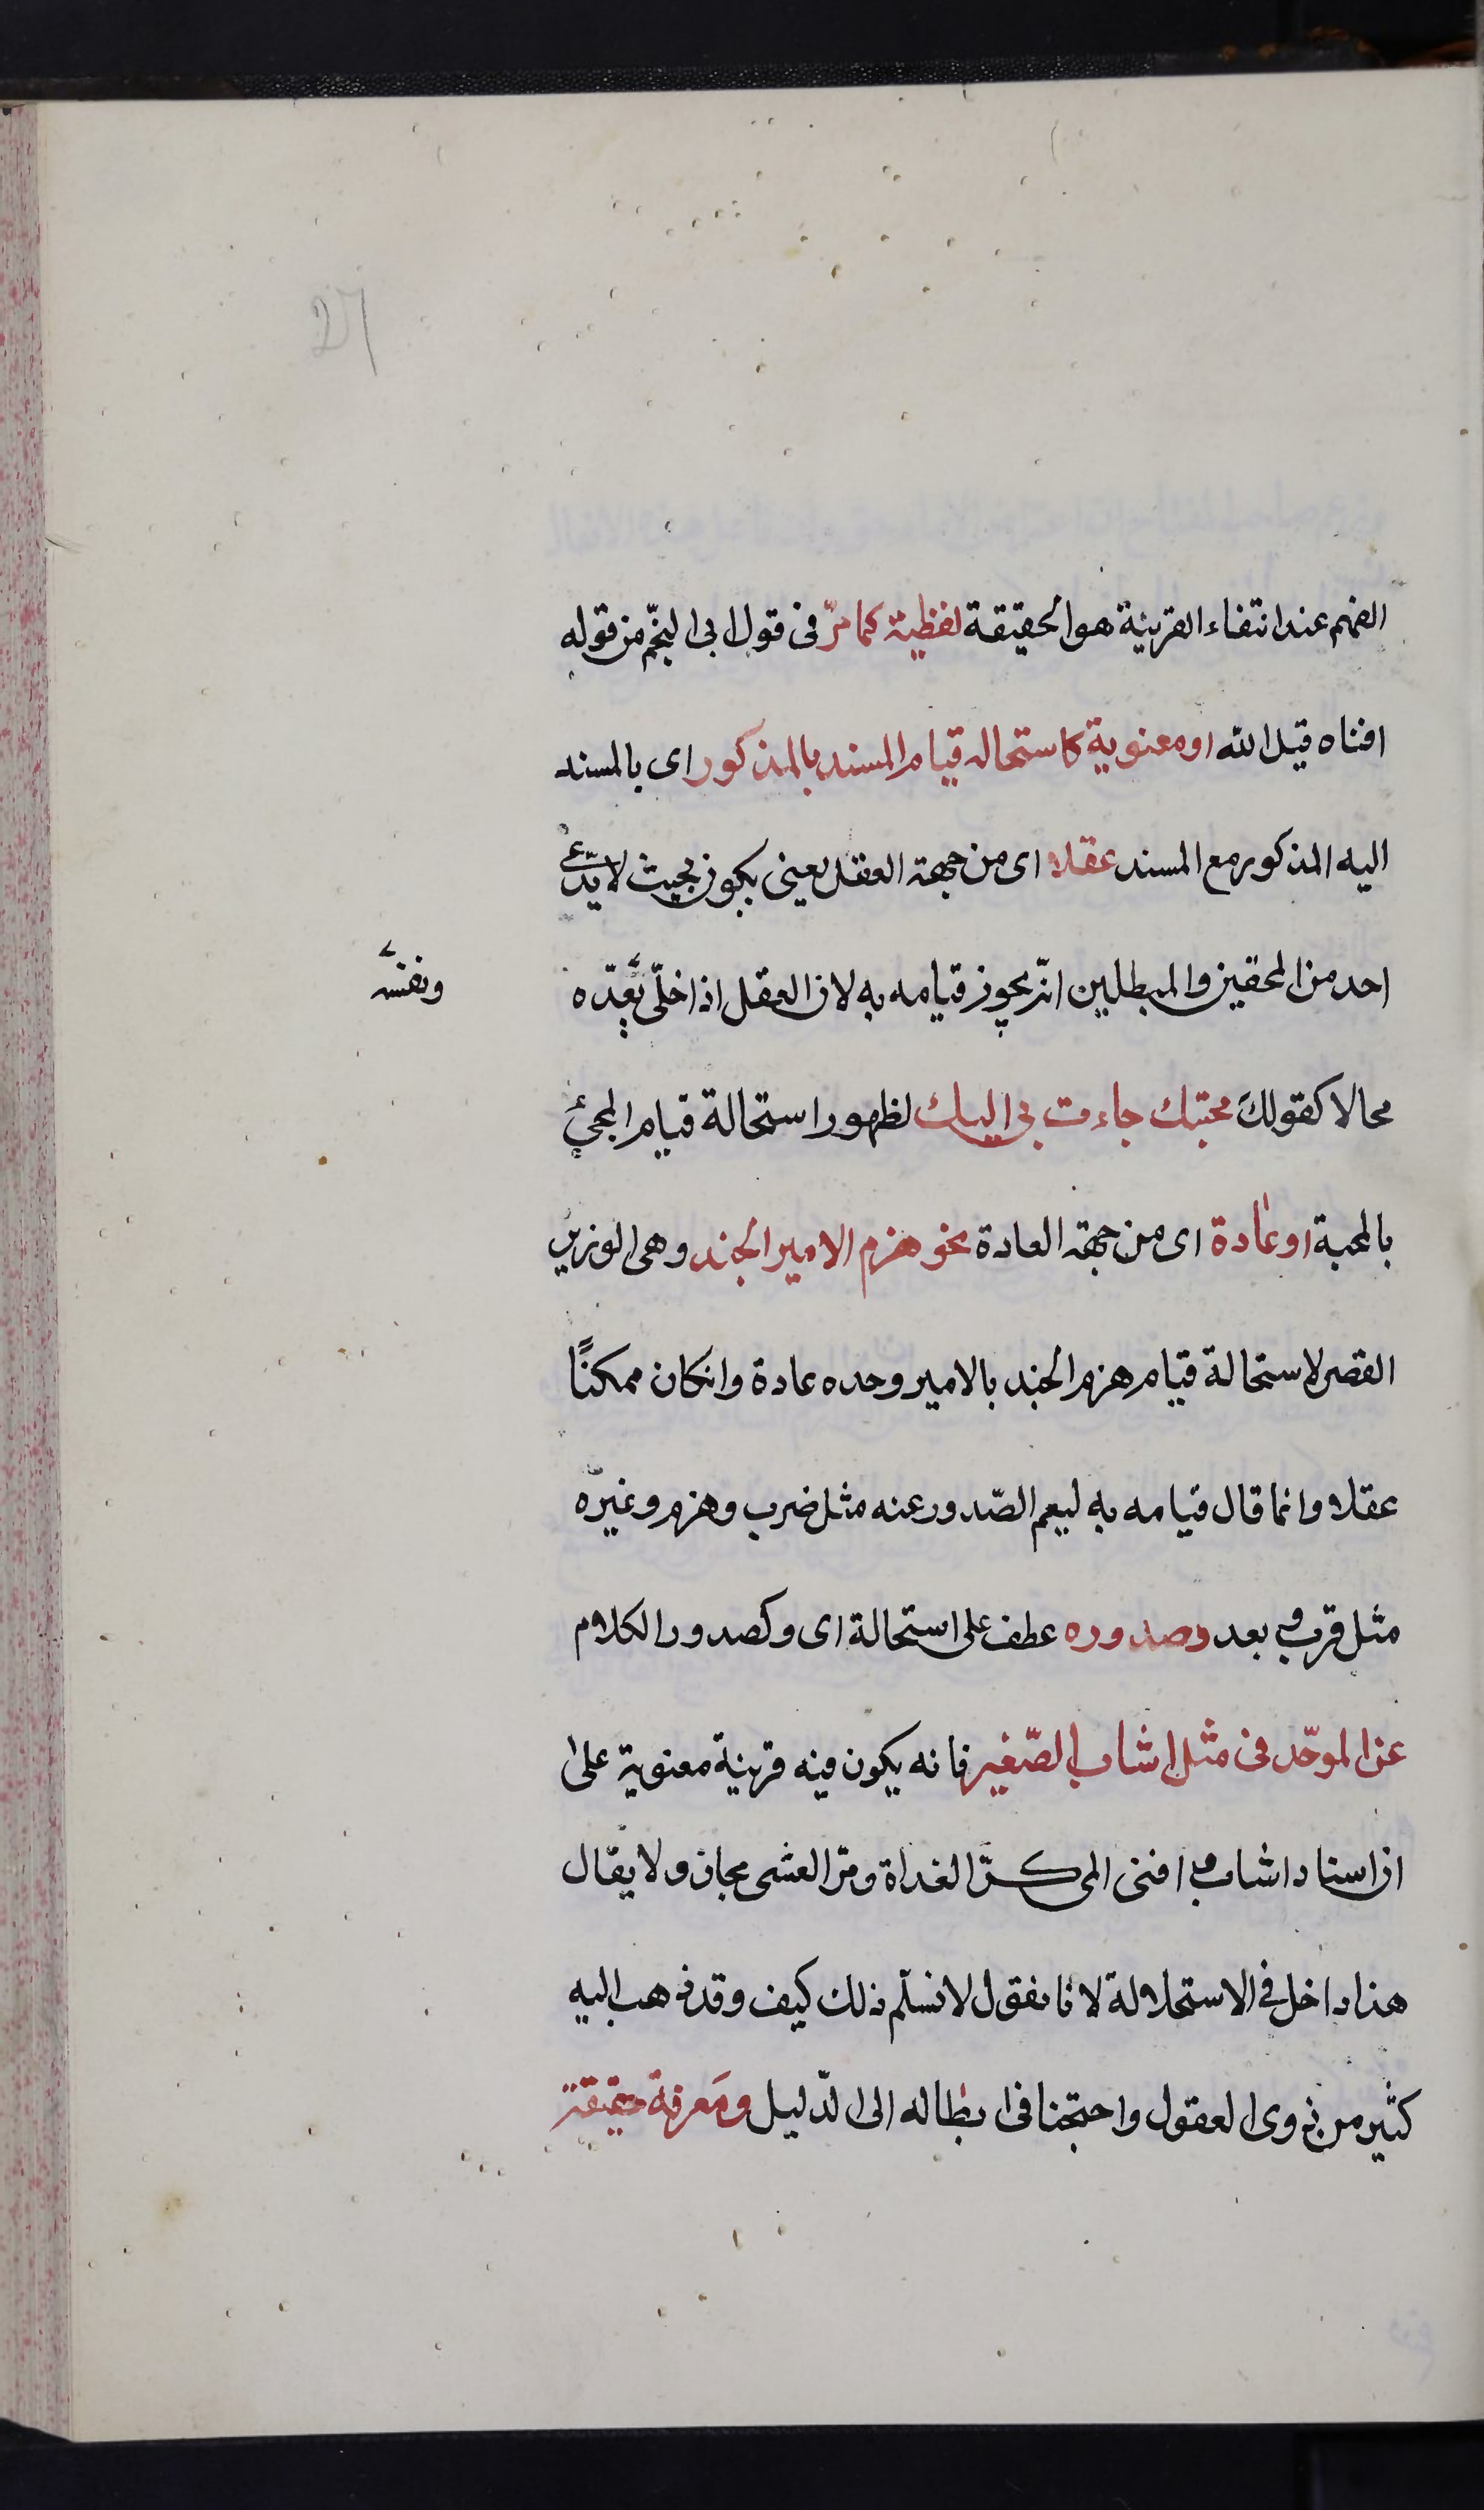 27
الفهم عند انتفاء القرينة هو الحقيقة لفظية كما مرّ فى قول ابى النجّم من قوله
افناه قيل الله او معنوية كاستحالة قيام المسند بالمذكور اى بالمسند
اليه المذكور مع المسند عقلا اى من جهة العقل يعنى يكون بحيث لا يدّعى
احد من المحقين والمبطلين انّه يجوز قيامه به لان العقل اذا خلّى يعدّه
ونفسه
محالا كقولك محبتك جاءت بى اليك لظهور استحالة قيام المجئ
بالمحبة او عادة اى من جهة العادة نحو هزم الامير الجند وهى الوزير
القصر لاستحالة قيام هزم الجند بالامير وحده عادة وانكان ممكنًا
عقلا وانما قال قيامه به ليعم الصّدور عنه مثل ضرب وهزم وغيره
مثل قرب وبعد وصدوره عطف على استحالة اى وكصدور الكلام
عن الموحّد فى مثل اشاب الصّغير فانه يكون فيه قرينة معنوية على
ان اسناد اشاب وافنى الى كرّ الغداة ومرّ العشى مجاز ولا يقال
هذا داخل فى الاستحلالة لانا نقول لا نسلّم ذلك كيف وقد ذهب اليه
كثير من ذوى العقول واحتجنا فى ابطاله الى الدّليل ومعرفة حقيقته